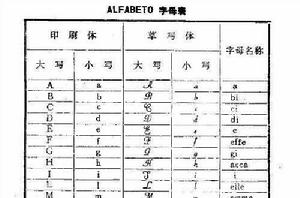 ALFABETO 字母表
印刷体 草写体 字母名称
大写 小写 大写 小写
A a A a a
B b B b bi
C c C c ci
D d D d di
E e E e e
F f F f effe
G g G g gi
H h H h acca
I i I i i
L l L l elle
M m M m